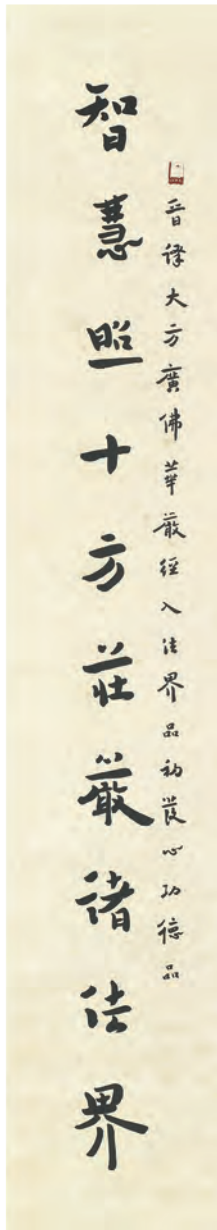 晉譯大方廣佛華嚴經入法界品初發心功德品
智慧照十方莊嚴諸法界